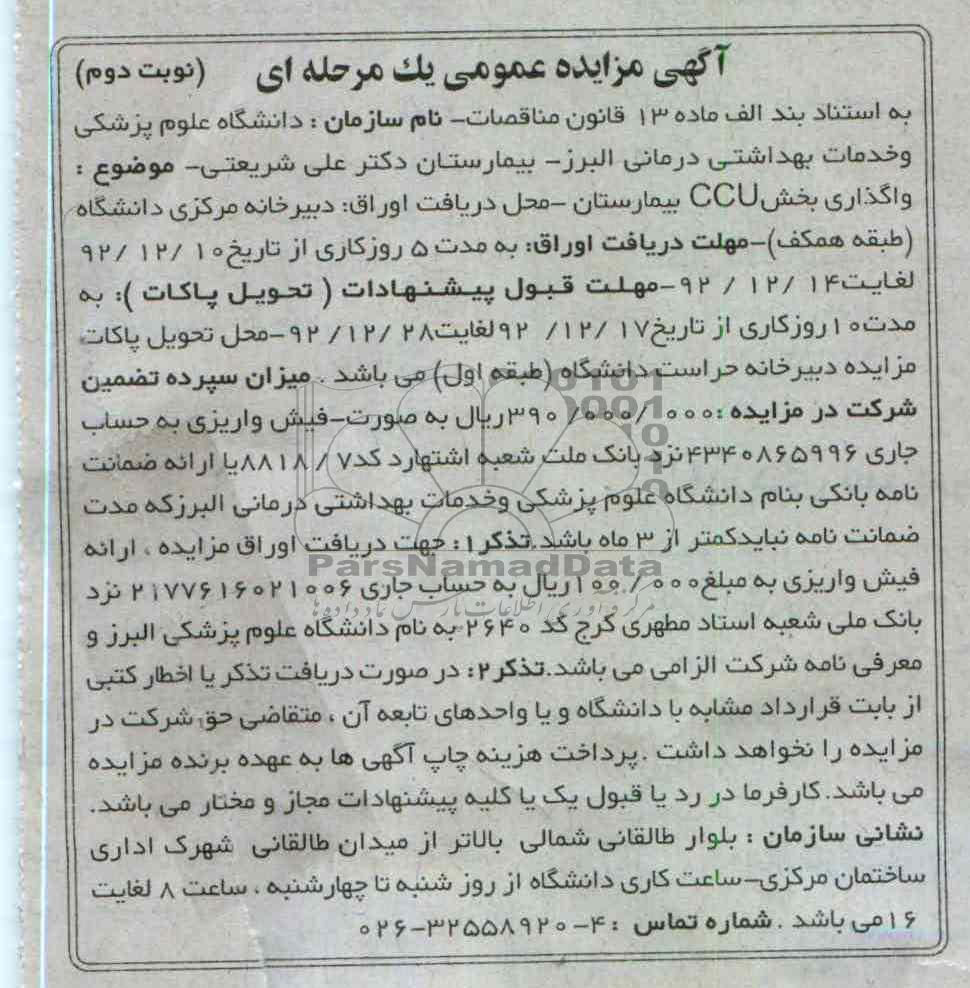 آگهی مزایده عمومی یك مرحله ای (نوبت دوم)
به استناد بند الف ماده ۱۳ قانون مناقصات- نام سازمان : دانشگاه علوم پزشکی
وخدمات بهداشتی درمانی البرز- بیمارستان دکتر علی شریعتی- موضوع :
واگذاری بخش CCU بیمارستان -محل دریافت اوراق: دبیرخانه مرکزی دانشگاه
(طبقه همکف)-مهلت دریافت اوراق: به مدت ۵ روزکاری از تاریخ ۱۰ /۱۲ /۹۲
لغایت ۱۴ /۱۲ / ۹۲-مهلت قبول پیشنهادات ( تحویل پاکات ): به
مدت ۱۰ روزکاری از تاریخ ۱۷ /۱۲/ ۹۲ لغایت ۲۸ /۱۲/ ۹۲-محل تحویل پاکات
مزایده دبیرخانه حراست دانشگاه (طبقه اول) می باشد . میزان سپرده تضمین
شرکت در مزایده :۳۹۰/۰۰۰/۰۰۰ ریال به صورت-فیش واریزی به حساب
جاری ۴۳۴۰۸۶۵۹۹۶ نزد بانک ملت شعبه اشتهارد کد ۸۸۱۸/۷ یا ارائه ضمانت
نامه بانکی بنام دانشگاه علوم پزشکی وخدمات بهداشتی درمانی البرزکه مدت
ضمانت نامه نبایدکمتر از ۳ ماه باشد.تذکر۱: جهت دریافت اوراق مزایده ، ارائه
ParsNamadData
فیش واریزی به مبلغ ۱۰۰/۰۰۰ ریال به حساب جاری ۲۱۷۷۶۱۶۰۲۱۰۰۶ نزد
مرکز فرآوری اطلاعات پارس نماد داده ها
بانک ملی شعبه استاد مطهری کرج کد ۲۶۴۰ به نام دانشگاه علوم پزشکی البرز و
معرفی نامه شرکت الزامی می باشد.تذکر۲: در صورت دریافت تذکر یا اخطار کتبی
از بابت قرارداد مشابه با دانشگاه و یا واحدهای تابعه آن ، متقاضی حق شرکت در
مزایده را نخواهد داشت .پرداخت هزینه چاپ آگهی ها به عهده برنده مزایده
می باشد. کارفرما در رد یا قبول یک یا کلیه پیشنهادات مجاز و مختار می باشد.
نشانی سازمان : بلوار طالقانی شمالی بالاتر از میدان طالقانی شهرک اداری
ساختمان مرکزی-ساعت کاری دانشگاه از روز شنبه تا چهارشنبه ، ساعت ۸ لغایت
۱۶ می باشد . شماره تماس : ۴-۳۲۵۵۸۹۲۰-۰۲۶